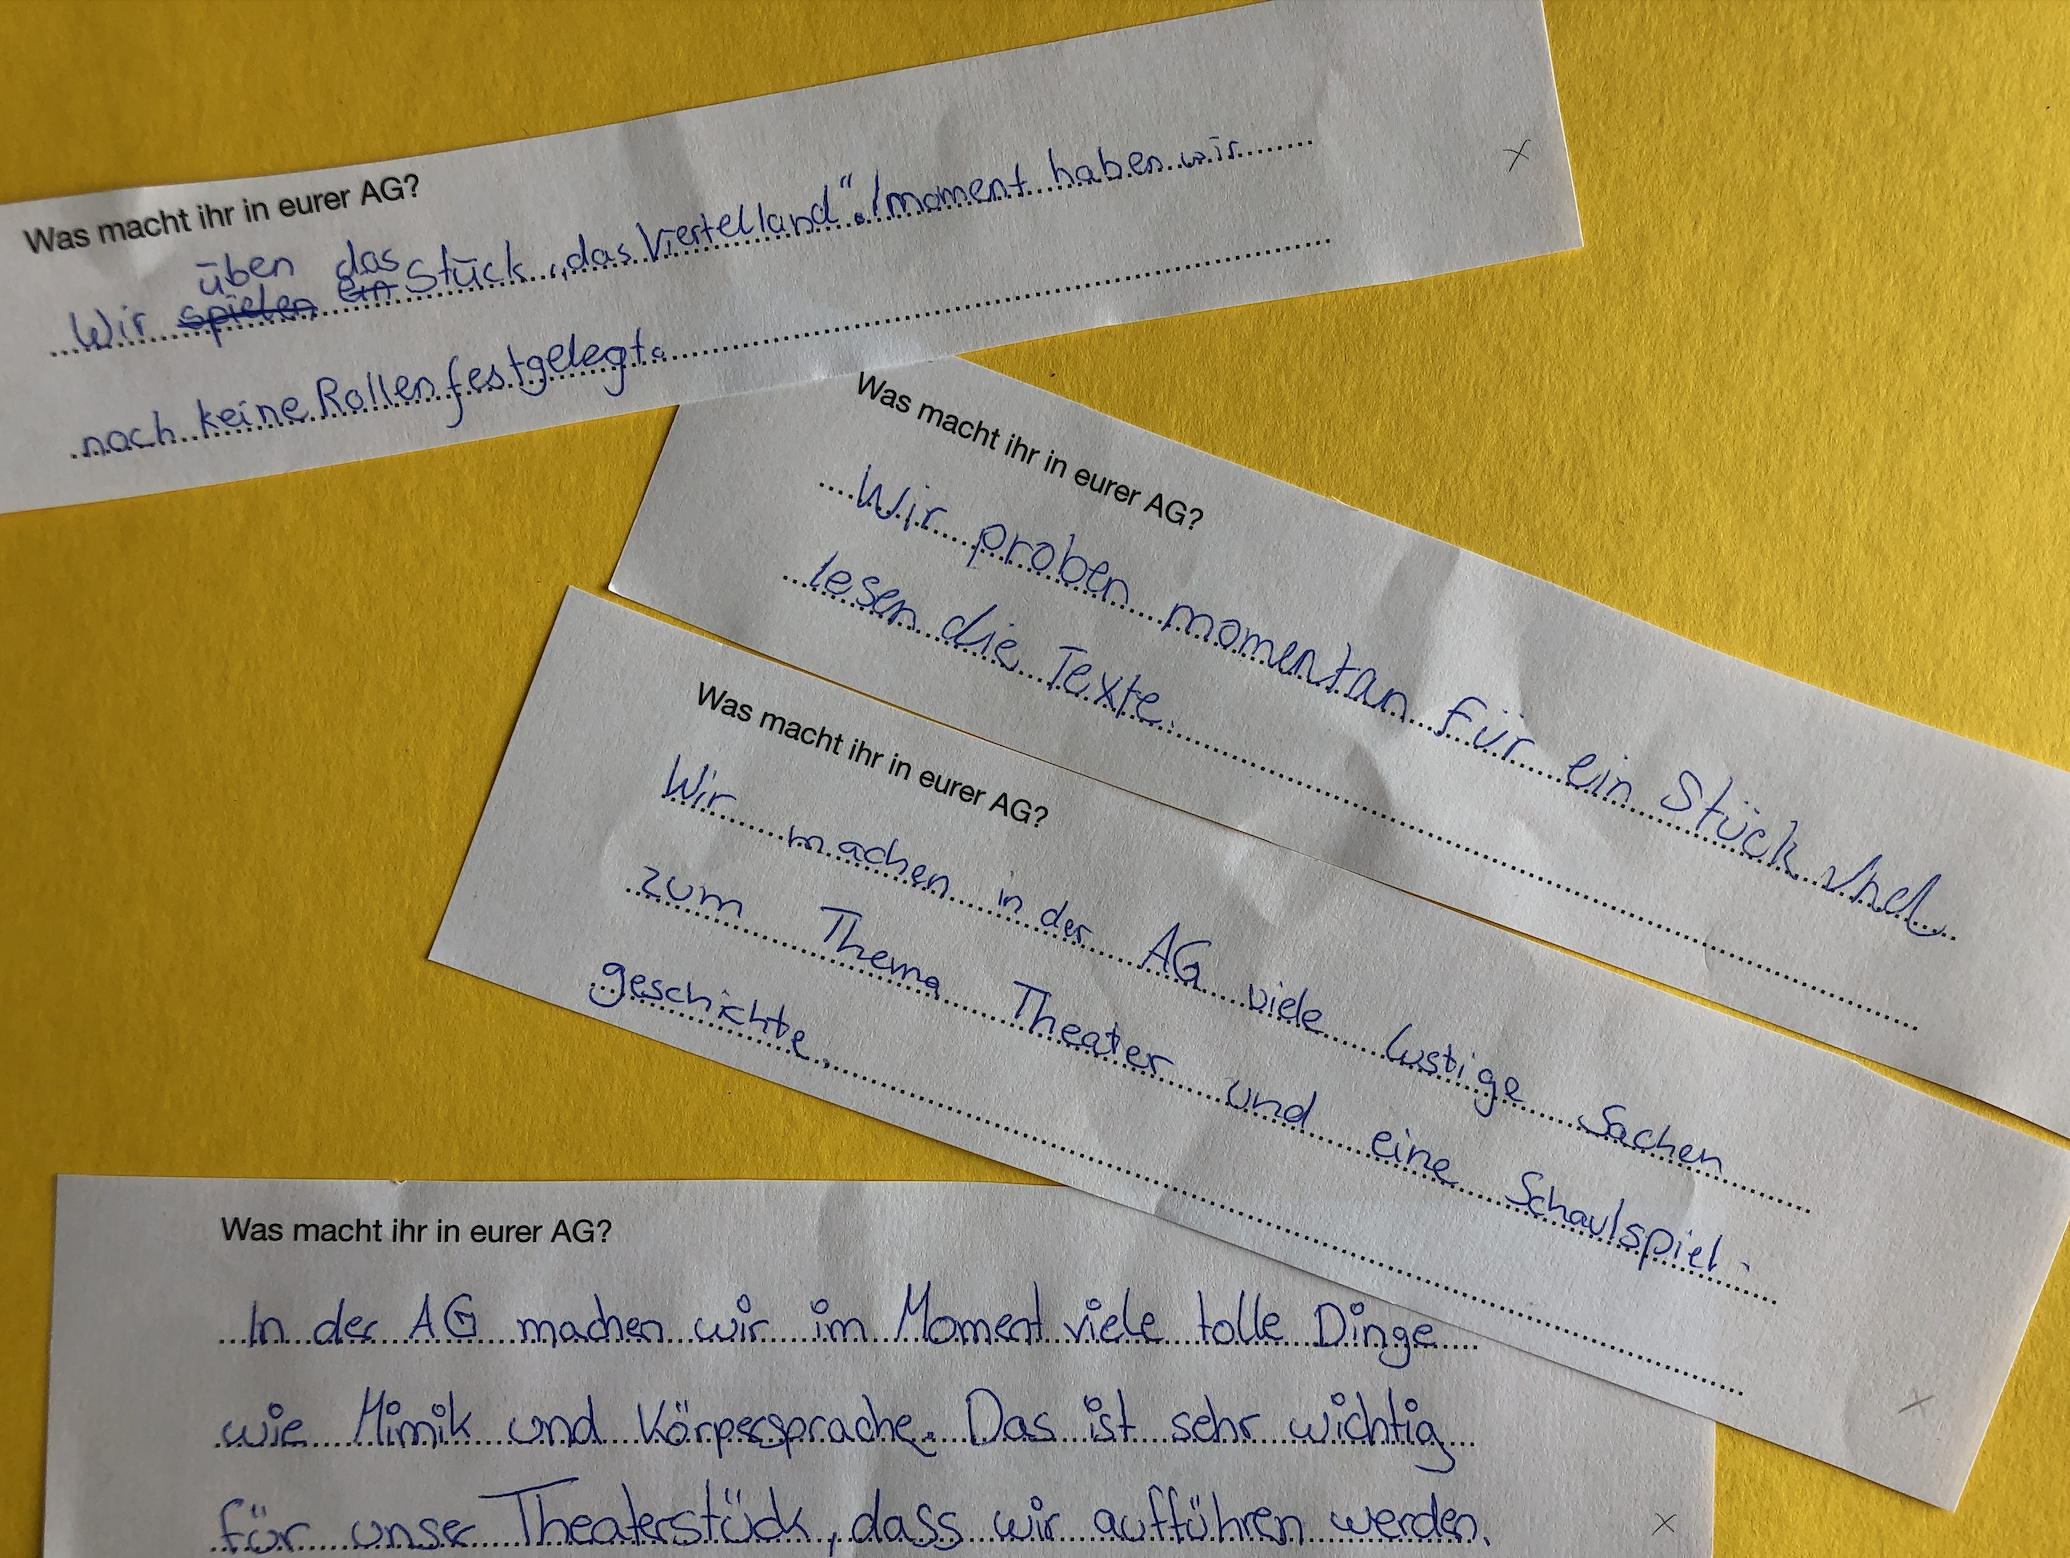 Was macht ihr in eurer AG?
üben das
Wir spielen ein Stück „das Viertelland“. Im moment haben wir
noch keine Rollen festgelegt.
Was macht ihr in eurer AG?
Wir proben momentan für ein Stück und
lesen die Texte.
Was macht ihr in eurer AG?
Wir machen in der AG viele lustige Sachen
zum Thema Theater und eine Schaulspiel-
geschichte.
Was macht ihr in eurer AG?
In der AG machen wir im Moment viele tolle Dinge
wie Mimik und Körpersprache. Das ist sehr wichtig
für unser Theaterstück, dass wir aufführen werden.